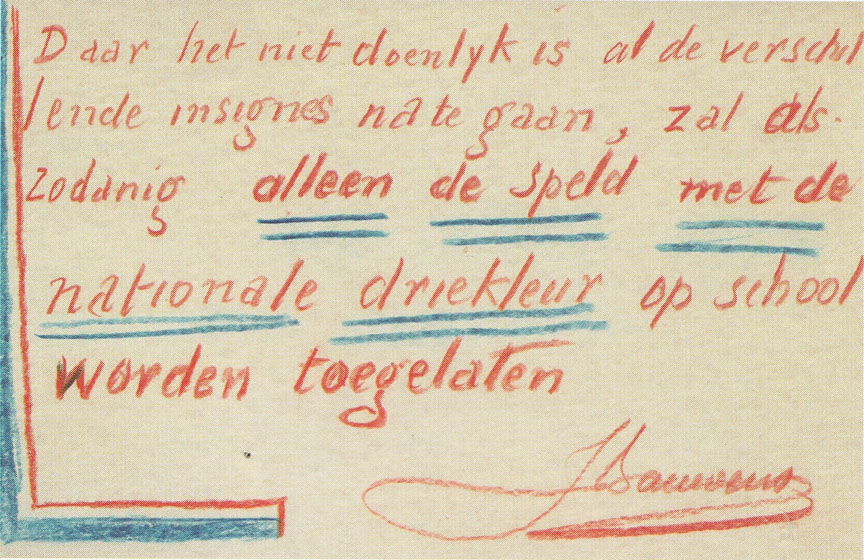 Daar het niet doenlyk is al de verschil
lende insignes na te gaan, zal als-
zodanig alleen de speld met de
nationale driekleur op school
worden toegelaten